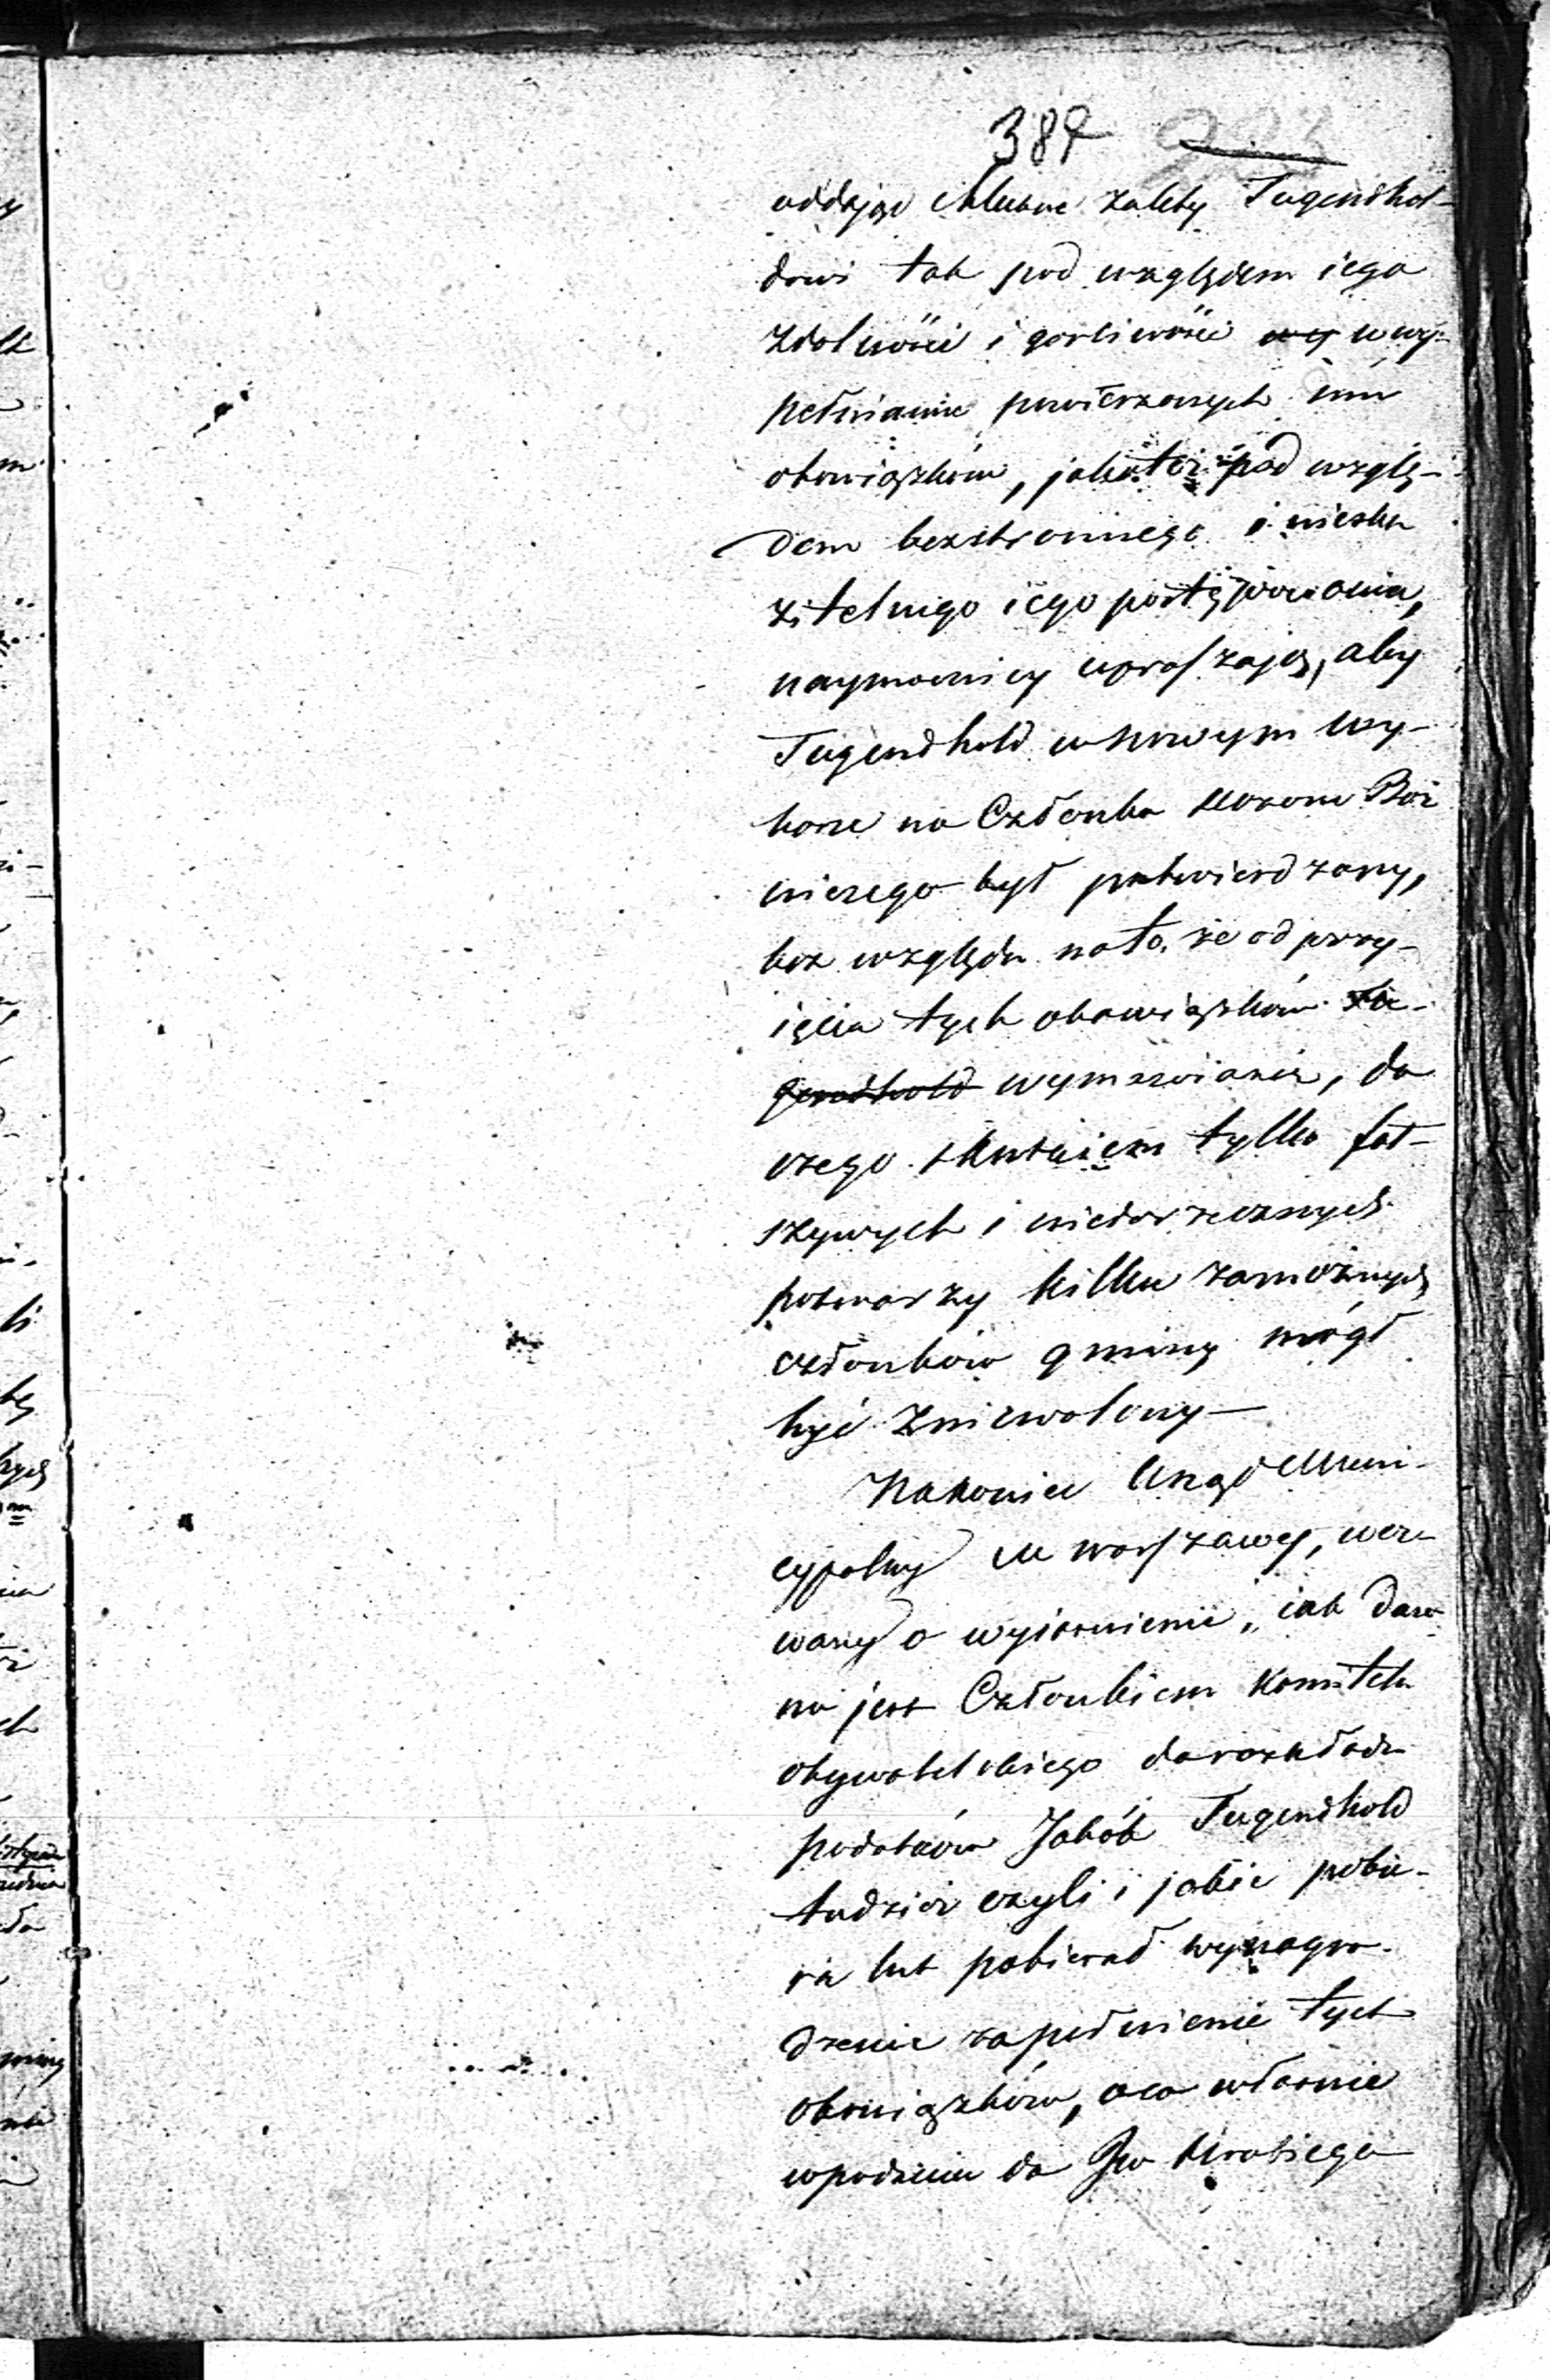 387
oddając chlubne zalety Tugendhol-
dowi tak pod względem iego
zdolności i gorliwości w wy-
pełnianiu powierzonych mu
obowiązków, jakoteż pod wzglę-
dem bezstronnego i nieska
zitelnego iego postępowania,
naymocniey upraszają, aby
Tugendhold w nowym wy-
borze na Członka Dozoru Boż
niczego był potwierdzony,
bez względu na to, że od przy-
ięcia tych obowiązków Tu-
gendhold wymawia się, do
czego skutkiem tylko fał-
szywych i niedorzecznych
potwarzy kilku zamożnych
członków gminy mógł
być zniewolony –
Nakoniec Urząd Muni-
cypalny M Warszawy, wez-
wany o wyiaśnienie, iak daw
no jest Członkiem Komitetu
obywatelskiego do rozkładu
podatków Jakób Tugendhold
tudzież czyli i jakie pobie-
ra lub pobierał wynagro-
dzenie za pełnienie tych
obowiązków, o co właśnie
w podaniu do Jw Hrabiego